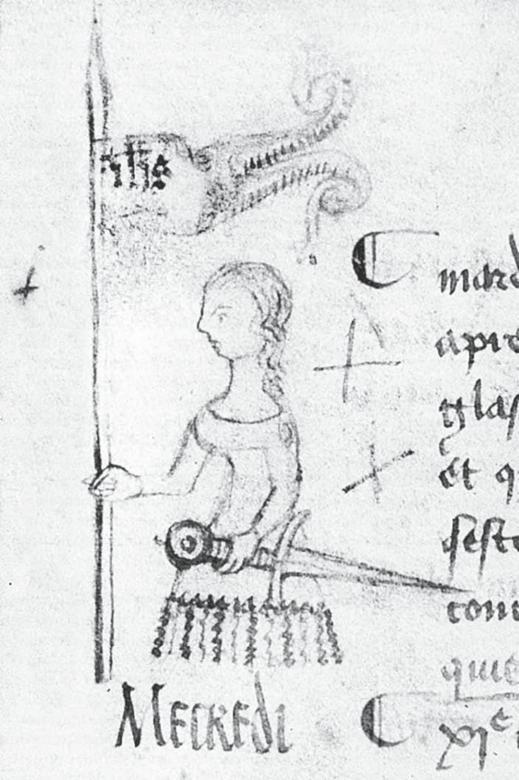 ihs
C mard
apre
glas
et q
feste
conn
quie
Mecredi
C xj^e